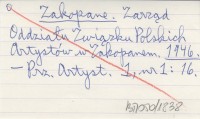 Zakopane. Zarząd
Oddziału Związku Polskich
Artystów w Zakopanem. 1946.
– Prz. Artyst. 1, nr 1: 16.